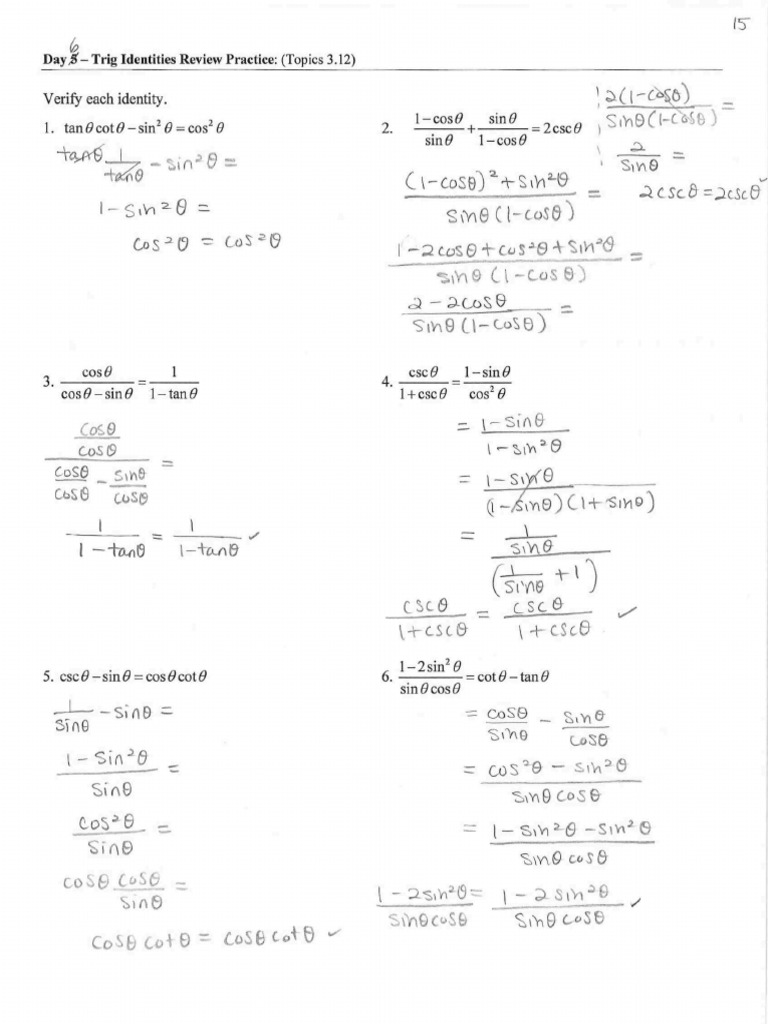 15
Day 6 – Trig Identities Review Practice: (Topics 3.12)
Verify each identity.
1. tanθcotθ − sin²θ = cos²θ
tanθ 1/tanθ − sin²θ =
1 − sin²θ =
cos²θ = cos²θ
2. (1−cosθ)/sinθ + sinθ/(1−cosθ) = 2cscθ
((1−cosθ)² + sin²θ)/(sinθ(1−cosθ)) =
(1−2cosθ+cos²θ+sin²θ)/(sinθ(1−cosθ)) =
(2−2cosθ)/(sinθ(1−cosθ)) =
2(1−cosθ)/(sinθ(1−cosθ)) =
2/sinθ =
2cscθ = 2cscθ ✓
3. cosθ/(cosθ−sinθ) = 1/(1−tanθ)
(cosθ/cosθ)/(cosθ/cosθ − sinθ/cosθ) =
1/(1−tanθ) = 1/(1−tanθ) ✓
4. cscθ/(1+cscθ) = (1−sinθ)/cos²θ
= (1−sinθ)/(1−sin²θ)
= (1−sinθ)/((1−sinθ)(1+sinθ))
= (1/sinθ)/(1/sinθ + 1)
cscθ/(1+cscθ) = cscθ/(1+cscθ) ✓
5. cscθ − sinθ = cosθcotθ
1/sinθ − sinθ =
(1−sin²θ)/sinθ =
cos²θ/sinθ =
cosθ cosθ/sinθ =
cosθ cotθ = cosθ cotθ ✓
6. (1−2sin²θ)/(sinθcosθ) = cotθ − tanθ
= cosθ/sinθ − sinθ/cosθ
= (cos²θ − sin²θ)/(sinθ cosθ)
= (1−sin²θ−sin²θ)/(sinθ cosθ)
(1−2sin²θ)/(sinθcosθ) = (1−2sin²θ)/(sinθ cosθ) ✓